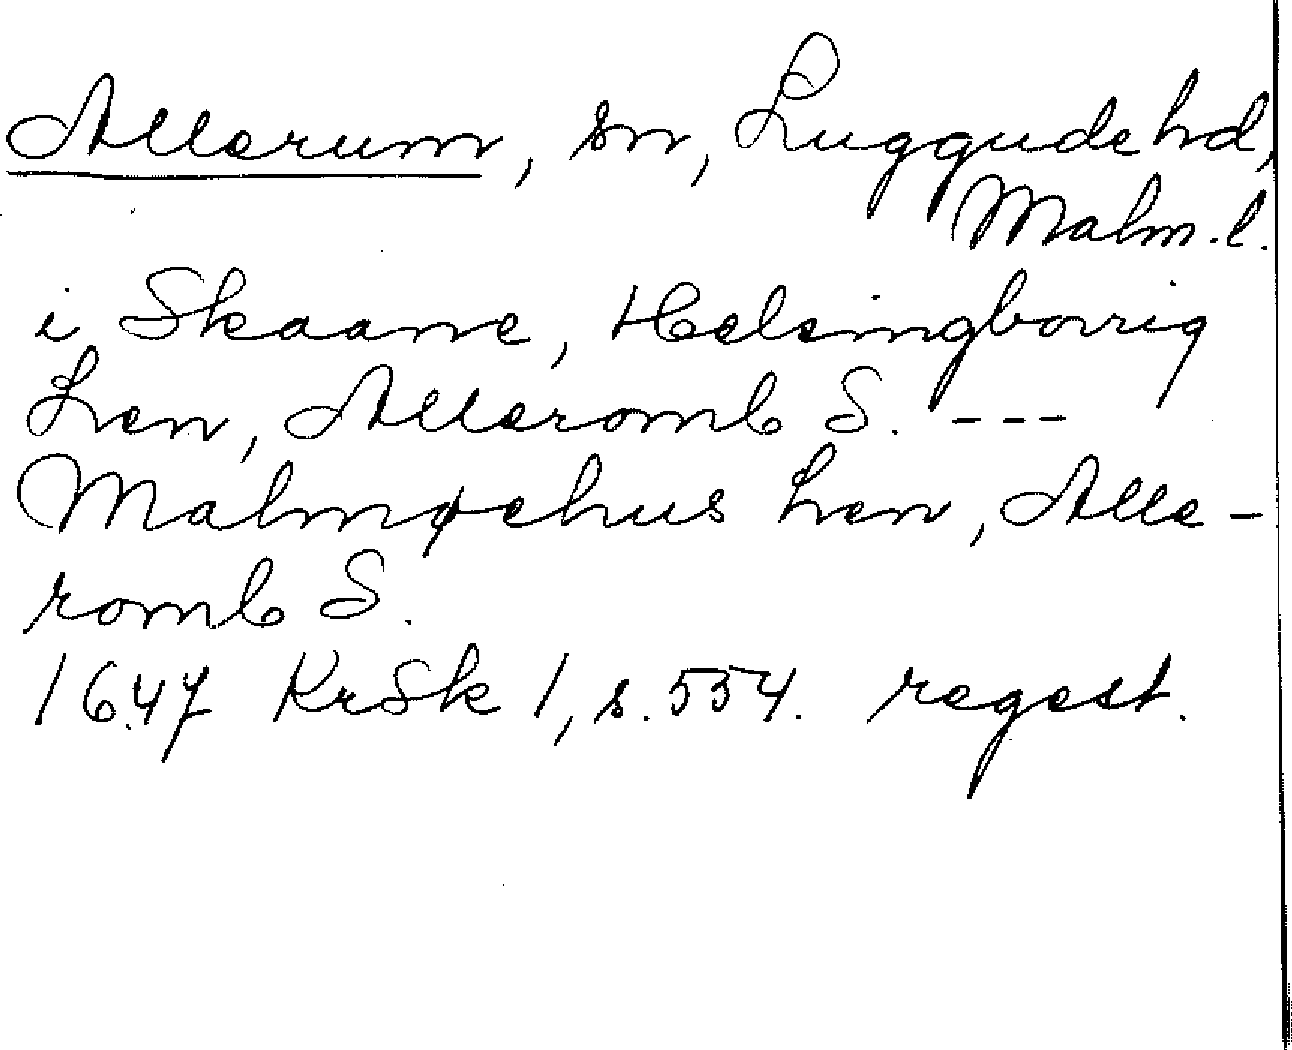 Allerum, sn, Luggudehd,
Malm.l.
i Skaane, Helsingborrig
Len, Alleromb S. ---
Malmøehus Len, Alle-
romb S.
1647 KrSk 1, s. 554. regest.